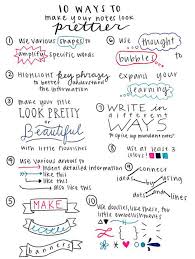 10 WAYS TO
make your notes look
prettier
① Use various shapes to
amplify specific words
② Highlight key phrases
to better understand
content
③ make your title
LOOK PRETTY
or
Beautiful
with little flourishes
④ Use various arrows to
indent detailed information
like this
like this
also like this
⑤ MAKE
little
banners
⑥ Use thought
bubbles to
expand your
learning
⑦ WRITE in
different
writing
to spice up monotone notes!
⑧ Use at least 3 colors!
⑨ connect
ideas by
using
dots lines
⑩ Use doodles, like these, for
little embellishments